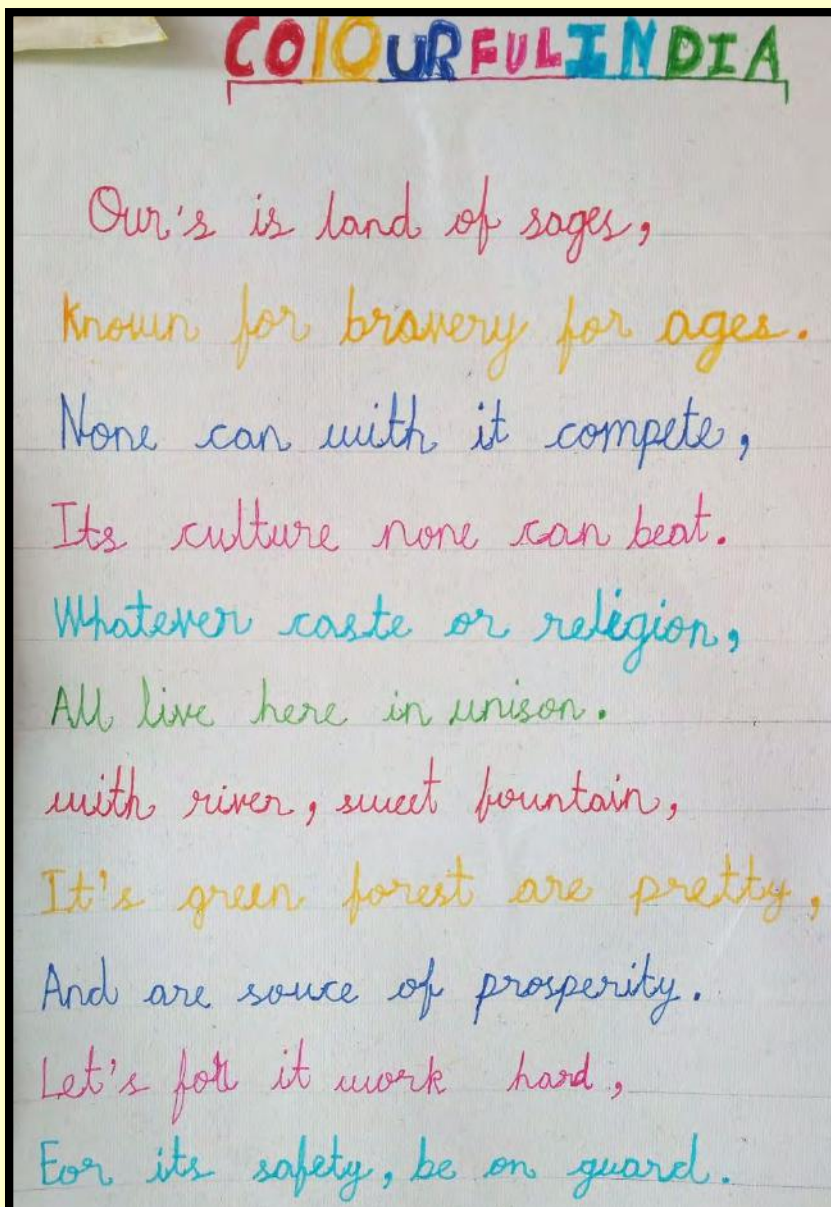 COlOURFUL INDIA
Our's is land of sages,
Known for bravery for ages.
None can with it compete,
Its culture none can beat.
Whatever caste or religion,
All live here in unison.
with river, sweet fountain,
It's green forest are pretty,
And are souce of prosperity.
Let's for it work hard,
For its safety, be on guard.